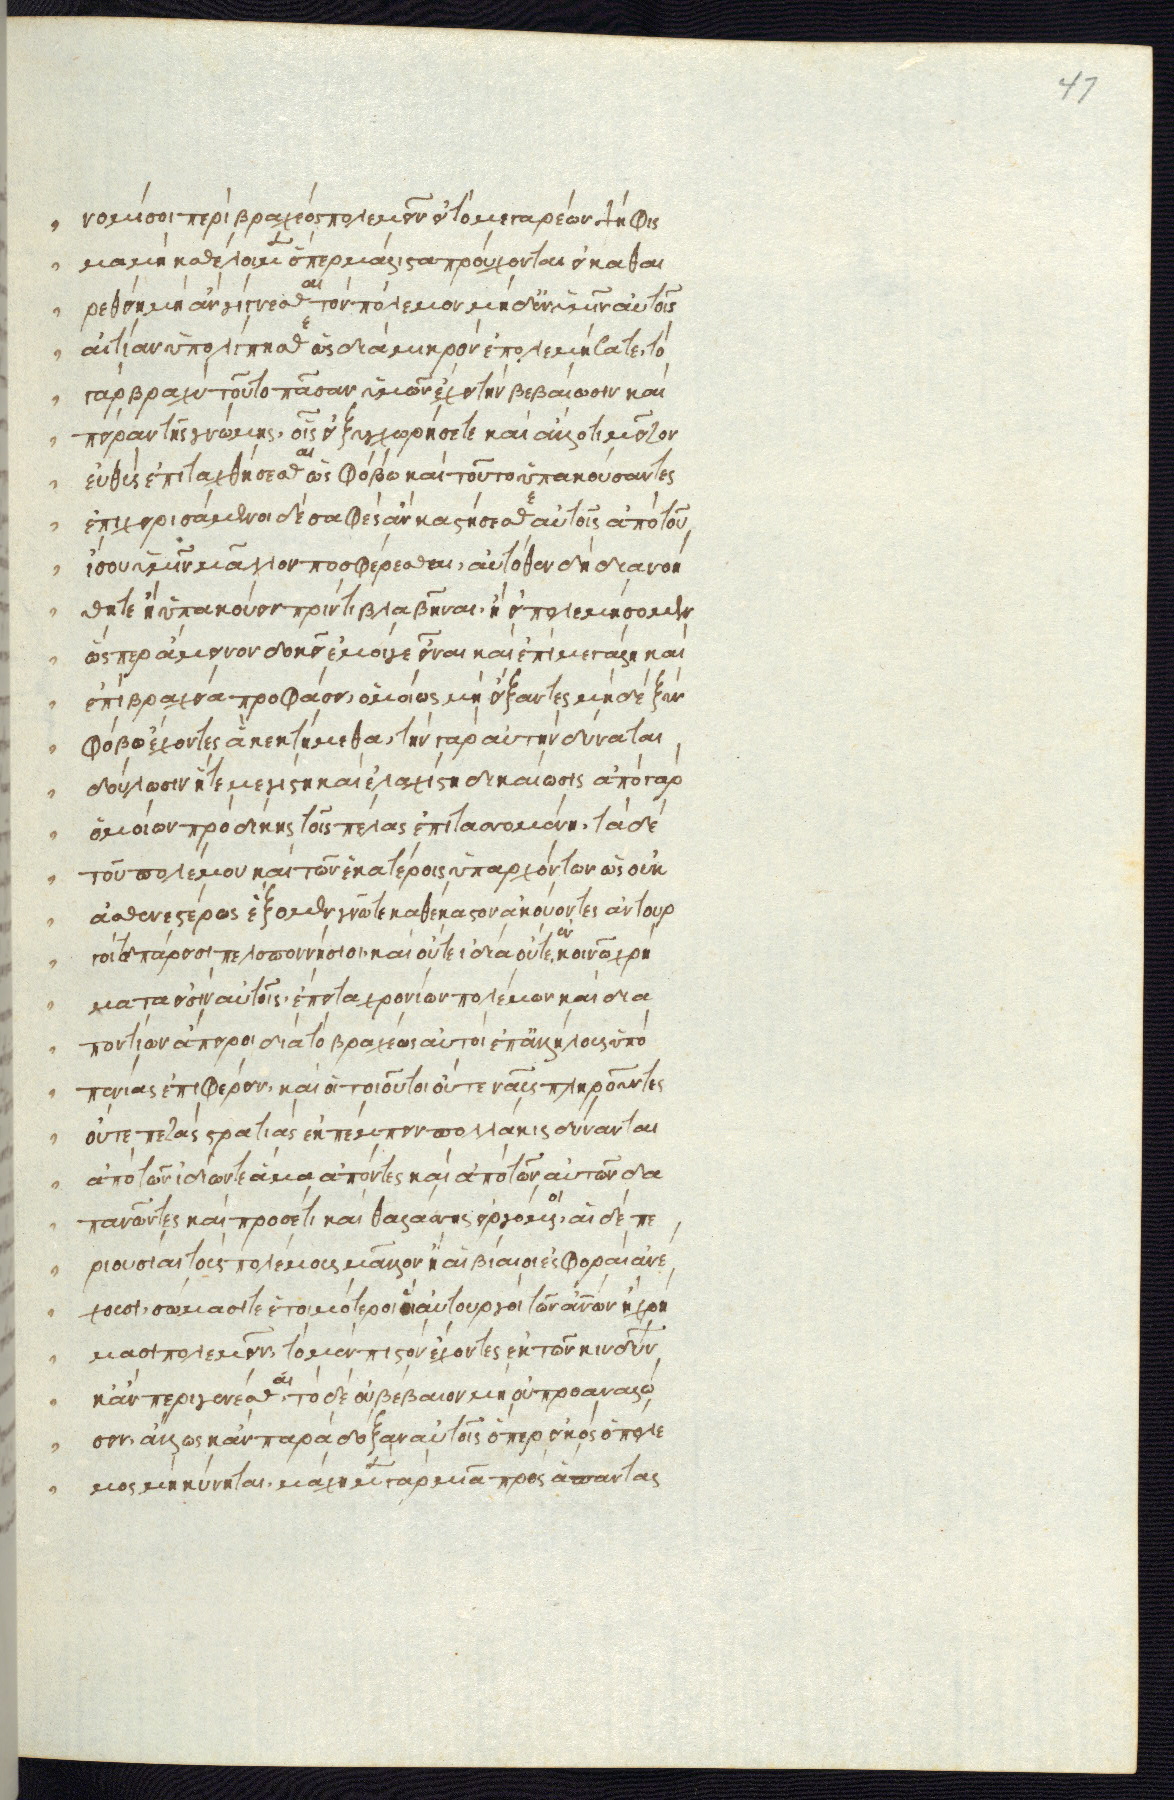 νομίσοι περὶ βραχέος πολεμεῖν εἰ τὸ μεγαρέων ψήφις
μα μὴ καθέλοιμεν ὅπερ μάλιστα προύχονται εἰ καθαι
ρεθείη μὴ ἂν γίγνεσθαι τὸν πόλεμον μηδ' ἐν ὑμῖν αὐτοῖς
αἰτίαν ὑπολίπησθε ὡς διὰ μικρὸν ἐπολεμήσατε. τὸ
γὰρ βραχὺ τοῦτο πᾶσαν ὑμῶν ἔχει τὴν βεβαίωσιν καὶ
πεῖραν τῆς γνώμης. οἷς εἰ ξυγχωρήσετε καὶ ἄλλο τι μεῖζον
εὐθὺς ἐπιταχθήσεσθαι ὡς φόβω καὶ τοῦτο ὑπακούσαντες
ἐπιχυρισάμενοι δὲ σαφὲς ἂν καστήσεσθε αὐτοῖς ἀπὸ τοῦ
ἴσου ὑμῖν μᾶλλον ποσφέρεσθαι. αὐτόθεν δὴ διανοή
θητε ἢ ὑπακούειν πρίν τι βλαβῆναι. ἢ εἰ πολεμήσομεν
ὥσπερ ἄμεινον δοκεῖ ἐμοίγε εἶναι καὶ ἐπὶ μεγάλη καὶ
ἐπὶ βραχεία προφάσει, ὁμοίως μὴ εἴξαντες μηδὲ ξὺν
φόβω ἔχοντες ἃ κεκτήμεθα. τὴν γὰρ αὐτὴν δύναται
δούλωσιν ἥτε μεγίστη καὶ ἐλαχίστη δικαίωσις ἀπὸ γὰρ
ὁμοίων πρὸ δίκης τοῖς πέλας ἐπιτασσομένη. τὰ δὲ
τοῦ πολέμου καὶ τῶν ἑκατέροις ὑπαρχόντων ὡς οὐκ
ἀσθενεστέρως ἕξομεν γνῶτε καθ' ἕκαστον ἀκούοντες αὐτουρ
γοί τε πάρεισι πελοποννήσιοι. καὶ οὔτε ἰδία οὔτε ἐν κοινῶ χρή
ματα εἰσὶν αὐτοῖς. ἔπειτα χρονίων πολέμων καὶ δια
ποντίων ἄπειροι διὰ τὸ βραχέως αὐτοὶ ἐπ' ἀλλήλοις ὑπὸ
πενίας ἐπιφέρειν. καὶ οἱ τοιοῦτοι οὔτε ναῦς πληροῦντες
οὔτε πεζὰς στρατιὰς ἐκπέμπειν πολλάκις δύνανται
ἀπὸ τῶν ἰδίων τε ἅμα ἀπόντες καὶ ἀπὸ τῶν αὐτῶν δα
πανῶντες καὶ προσέτι καὶ θαλάσσης εἰργόμενοι. αἱ δὲ πε
ριουσίαι τοὺς πολέμους μᾶλλον ἢ αἱ βίαιοι ἐσφοραὶ ἀνέ
χουσι. σώμασί τε ἑτοιμότεροι οἱ αὐτουργοὶ τῶν ἀνθρώπων ἢ χρή
μασι πολεμεῖν. τὸ μὲν πιστὸν ἔχοντες ἐκ τῶν κινδύνων
κἂν περιγενέσθαι. τὸ δὲ οὐ βέβαιον μὴ οὐ προαναλώ
σειν. ἄλλως κἂν παρὰ δόξαν αὐτοῖς ὅπερ εἰκὸς ὁ πόλε
μος μηκύνηται. μάχη μὲν γὰρ μιᾶ πρὸς ἅπαντας